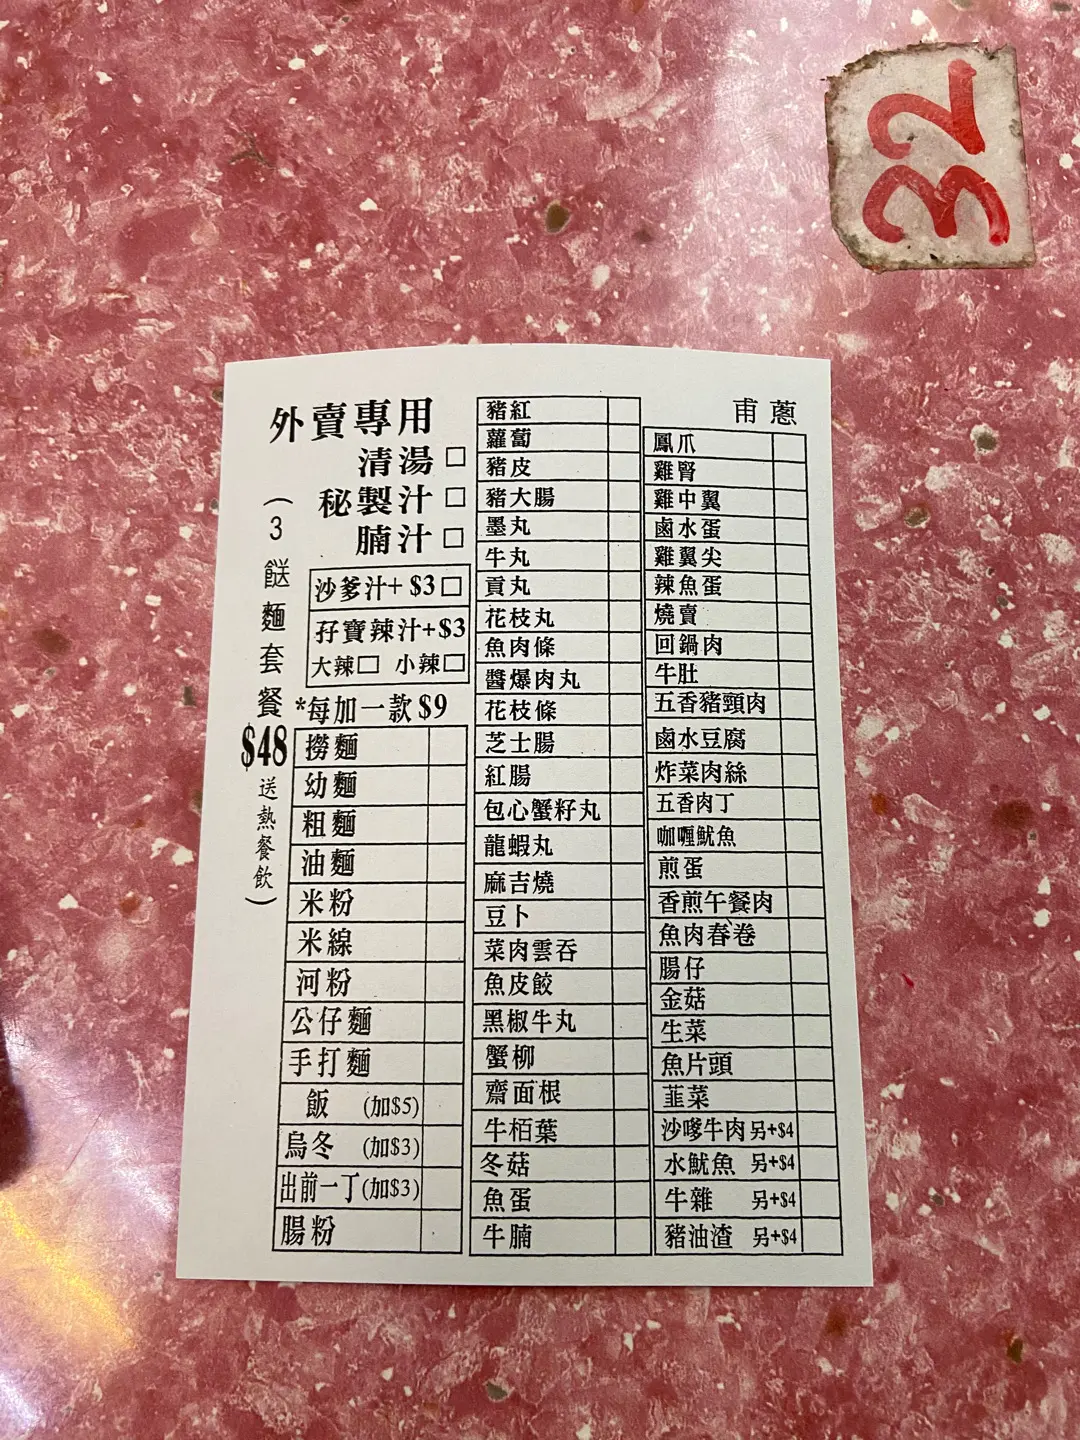 32
外賣專用
清湯 □
秘製汁 □
腩汁 □
沙爹汁+ $3 □
孖寶辣汁+$3
大辣□ 小辣□
*每加一款 $9
(3餸麵套餐$48送熱餐飲)
撈麵
幼麵
粗麵
油麵
米粉
米線
河粉
公仔麵
手打麵
飯 (加$5)
烏冬 (加$3)
出前一丁(加$3)
腸粉
豬紅
蘿蔔
豬皮
豬大腸
墨丸
牛丸
貢丸
花枝丸
魚肉條
醬爆肉丸
花枝條
芝士腸
紅腸
包心蟹籽丸
龍蝦丸
麻吉燒
豆卜
菜肉雲吞
魚皮餃
黑椒牛丸
蟹柳
齋面根
牛栢葉
冬菇
魚蛋
牛腩
甫蔥
鳳爪
雞腎
雞中翼
鹵水蛋
雞翼尖
辣魚蛋
燒賣
回鍋肉
牛肚
五香豬頸肉
鹵水豆腐
炸菜肉絲
五香肉丁
咖喱魷魚
煎蛋
香煎午餐肉
魚肉春卷
腸仔
金菇
生菜
魚片頭
韮菜
沙嗲牛肉 另+$4
水魷魚 另+$4
牛雜 另+$4
豬油渣 另+$4